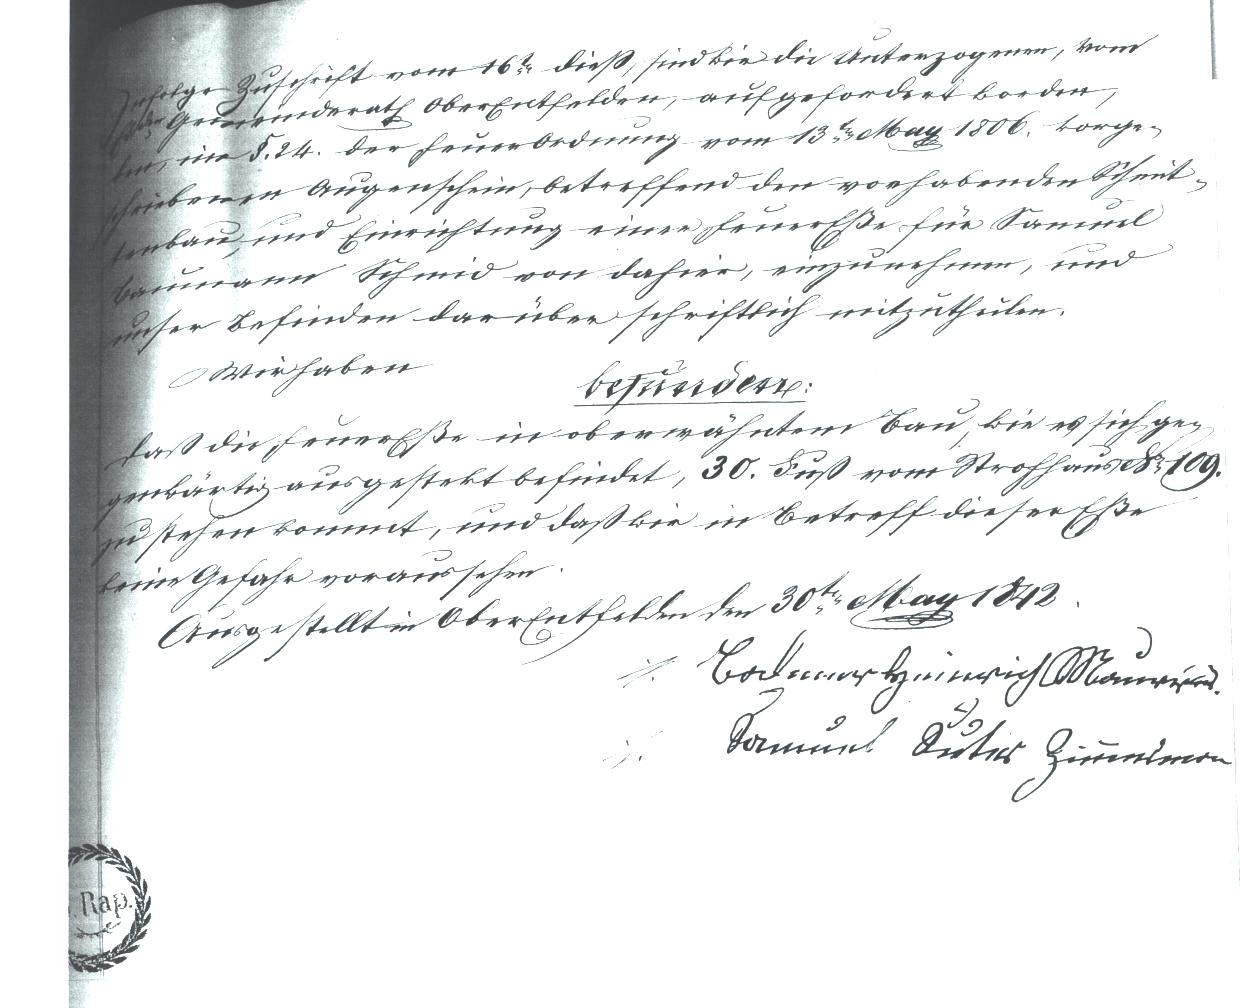 Zufolge Zuschrift vom 16t. dieß, sind wir die Unterzogenen, vom
Gemeinderath OberEntfelden, aufgefordert worden,
den, im §. 24. der Feuerordnung vom 13ten May 1806. vorge-
schriebenen Augenschein, betreffend den vorhabenden Schmit-
tenbau, und Einrichtung einer FeuerEße für Samuel
Baumann Schmid von dahier, einzunehmen, und
unser Befinden darüber schriftlich mitzutheilen.
Wir haben
befunden:
daß die FeuerEße in oberwähntem Bau, wie es sich ge-
genwärtig ausgestekt befindet, 30. Fuß vom Strohhaus No. 109.
zu stehen kommt, und daß wir in Betreff dieser Eße
keine Gefahr voraussehen.
Ausgestellt in OberEntfelden den 30ten May 1842.
Bodmer Heinrich Maurer
Samuel Suter Zimmerman
Rap.